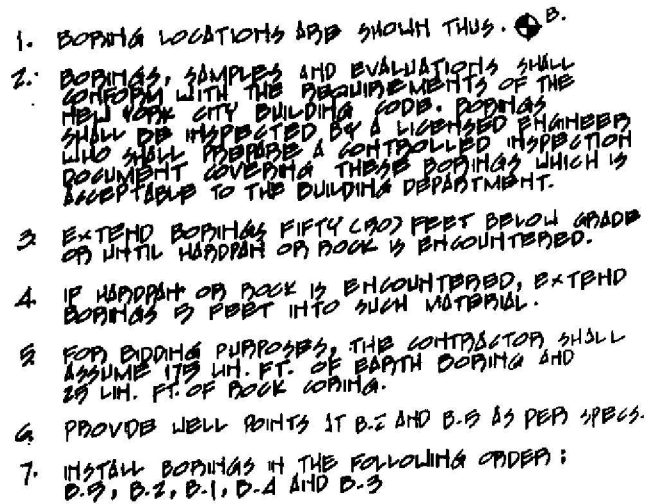 1. BORING LOCATIONS ARE SHOWN THUS. B.
2. BORINGS, SAMPLES AND EVALUATIONS SHALL
CONFORM WITH THE REQUIREMENTS OF THE
NEW YORK CITY BUILDING CODE. BORINGS
SHALL BE INSPECTED BY A LICENSED ENGINEER
WHO SHALL PREPARE A CONTROLLED INSPECTION
DOCUMENT COVERING THESE BORINGS WHICH IS
ACCEPTABLE TO THE BUILDING DEPARTMENT.
3 EXTEND BORINGS FIFTY (50) FEET BELOW GRADE
OR UNTIL HARDPAN OR ROCK IS ENCOUNTERED.
4. IF HARDPAN OR ROCK IS ENCOUNTERED, EXTEND
BORINGS 5 FEET INTO SUCH MATERIAL.
5. FOR BIDDING PURPOSES, THE CONTRACTOR SHALL
ASSUME 175 LIN. FT. OF EARTH BORING AND
25 LIN. FT. OF ROCK CORING.
6. PROVIDE WELL POINTS AT B-2 AND B-5 AS PER SPECS.
7. INSTALL BORINGS IN THE FOLLOWING ORDER:
B-5, B-2, B-1, B-4 AND B-3